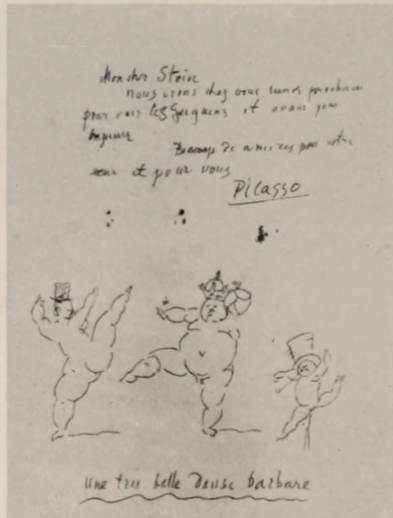 Mon cher Stein
nous irons chez vous lundi prochain
pour voir les Gauguins et avant pour
dejeuner
Beaucoup de amitiés pour votre
seur et pour vous
Picasso
une tres belle danse barbare